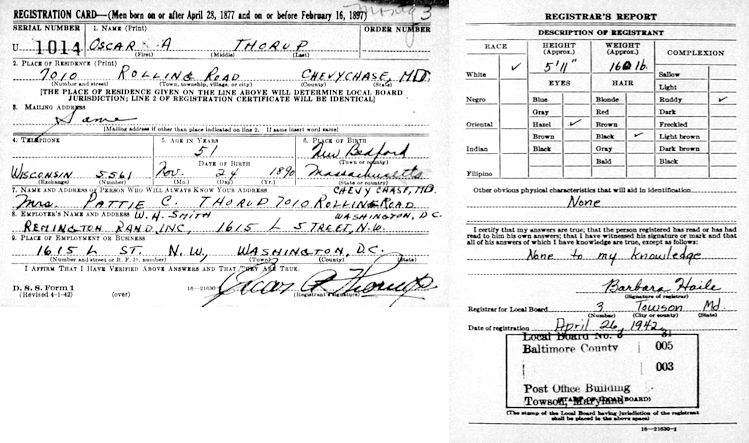 REGISTRATION CARD—(Men born on or after April 28, 1877 and on or before February 16, 1897)
SERIAL NUMBER
1. NAME (Print)
ORDER NUMBER
U 1014
OSCAR A THORUP
(First) (Middle) (Last)
2. PLACE OF RESIDENCE (Print)
7010 ROLLING ROAD CHEVY CHASE, MD.
(Number and street) (Town, township, village, or city) (County) (State)
[THE PLACE OF RESIDENCE GIVEN ON THE LINE ABOVE WILL DETERMINE LOCAL BOARD
JURISDICTION; LINE 2 OF REGISTRATION CERTIFICATE WILL BE IDENTICAL]
3. MAILING ADDRESS
Same
[Mailing address if other than place indicated on line 2. If same insert word same]
4. TELEPHONE
5. AGE IN YEARS
6. PLACE OF BIRTH
51
New Bedford
DATE OF BIRTH
(Town or county)
WISCONSIN 5561
Nov. 24 1890
Massachusetts
(Exchange) (Number)
(Mo.) (Day) (Yr.)
(State or country)
7. NAME AND ADDRESS OF PERSON WHO WILL ALWAYS KNOW YOUR ADDRESS
CHEVY CHASE, MD.
MRS. PATTIE C. THORUP 7010 ROLLING ROAD
8. EMPLOYER'S NAME AND ADDRESS W. H. SMITH WASHINGTON, D.C.
REMINGTON RAND, INC, 1615 L STREET, N.W.
9. PLACE OF EMPLOYMENT OR BUSINESS
1615 L ST. N.W, WASHINGTON, D.C.
(Number and street or R. F. D. number) (Town) (County) (State)
I AFFIRM THAT I HAVE VERIFIED ABOVE ANSWERS AND THAT THEY ARE TRUE.
Oscar A. Thorup
D. S. S. Form 1
(Revised 4-1-42) (over) 16—21630-2 (Registrant's signature)
REGISTRAR'S REPORT
DESCRIPTION OF REGISTRANT
RACE
HEIGHT (Approx.)
WEIGHT (Approx.)
COMPLEXION
White
5' 11"
160 lb.
Sallow
EYES
HAIR
Light
Negro
Blue
Blonde
Ruddy
Gray
Red
Dark
Oriental
Hazel
Brown
Freckled
Brown
Black
Light brown
Indian
Black
Gray
Dark brown
Bald
Black
Filipino
Other obvious physical characteristics that will aid in identification
None
I certify that my answers are true; that the person registered has read or has had
read to him his own answers; that I have witnessed his signature or mark and that
all of his answers of which I have knowledge are true, except as follows:
None to my knowledge
Barbara Haile
(Signature of registrar)
Registrar for Local Board 3 Towson Md.
(Number) (City or county) (State)
Date of registration April 26, 1942
Local Board No.
Baltimore County 005
003
Post Office Building
Towson, Maryland
(STAMP OF LOCAL BOARD)
(The stamp of the Local Board having jurisdiction of the registrant
shall be placed in the above space)
16—21630-1